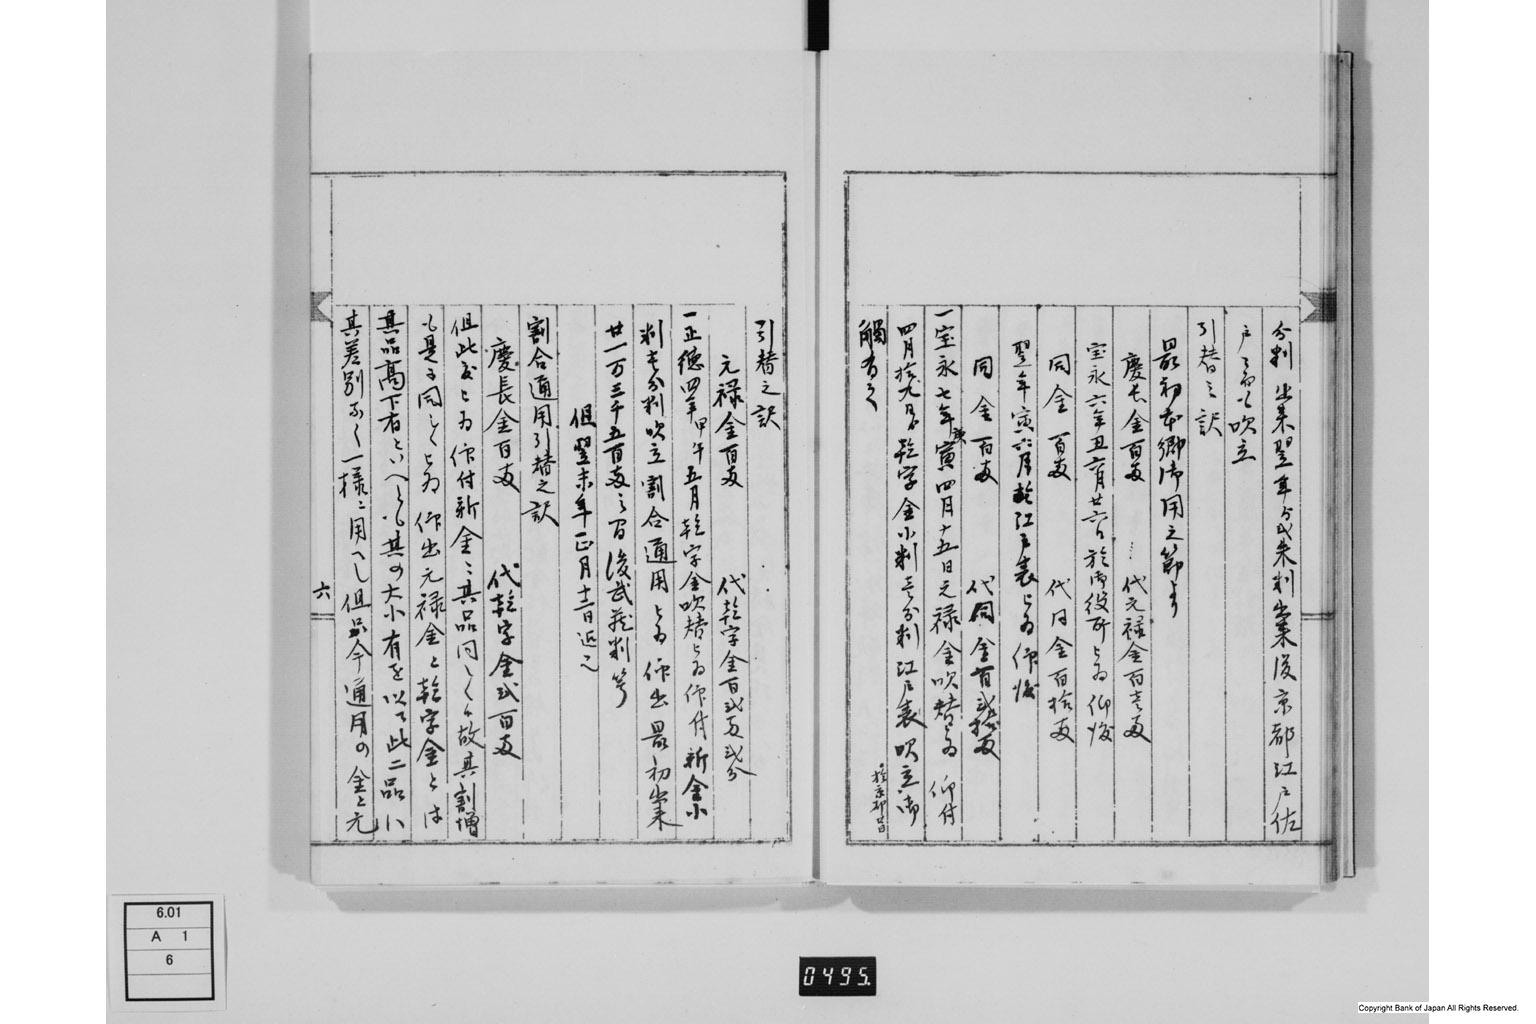 分判出来翌年分弐朱判出来後京都江戸佐
戸ニ而も吹立
引替之訳
最初本郷御用之節より
慶長金百両　代元禄金百壱両
宝永六年丑六月廿六日於御役所被為仰渡
同金百両　代同金百拾両
翌年寅六月於江戸表被為仰渡
同金百両　代同金百弐拾両
一宝永七年庚寅四月十五日元禄金吹替被為仰付
四月拾九日乾字金小判壱分判江戸表吹立御
触有之
引替之訳
元禄金百両　代乾字金百弐両弐分
一正徳四年甲午五月乾字金吹替被為仰付新金小
判壱分判吹立割合通用被為仰出最初出来
廿一万三千五百両之百後武蔵判等
但翌未年正月十一日迄之
割合通用引替之訳
慶長金百両　代乾字金弐百両
但此度被為仰付新金ニ其品同しく候故其割増
も是ニ同しく被為仰出元禄金と乾字金とは
其品高下有といへとも其の大小有を以て此二品ハ
其差別なく一様ニ用へし但只今通用の金ニ元
六
6.01
A 1
6
0495.
Copyright Bank of Japan All Rights Reserved.